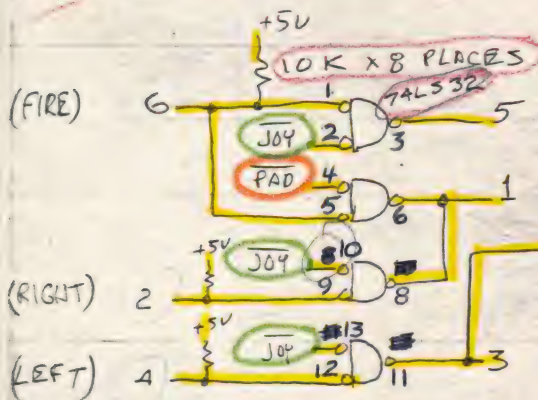 +5V
10K x 8 PLACES
74LS32
(FIRE) 6 1 5
JOY 2 3
PAD 4
5 6 1
+5V JOY 10
(RIGHT) 2 9 8
+5V JOY 13 3
(LEFT) 4 12 11